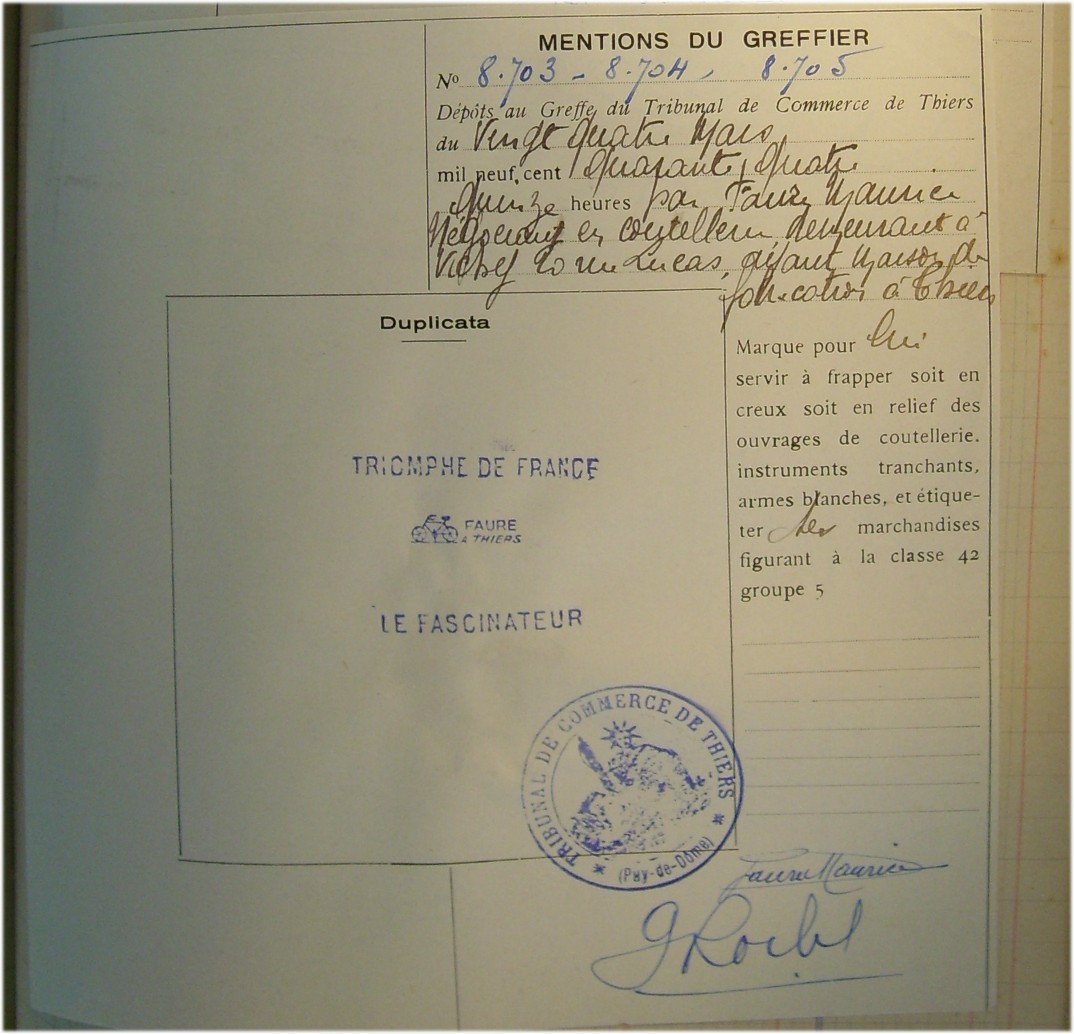 MENTIONS DU GREFFIER
No 8.703 - 8.704, 8.705
Dépôts au Greffe du Tribunal de Commerce de Thiers
du Vingt quatre Mars
mil neuf cent Quarante Quatre
Quinze heures par Faure Maurice
Négociant en coutellerie demeurant à
Vichy 20 rue Lucas, ayant Maison de
à Thiers
Duplicata
Marque pour lui
servir à frapper soit en
creux soit en relief des
ouvrages de coutellerie.
instruments tranchants,
armes blanches, et étique-
ter les marchandises
figurant à la classe 42
groupe 5
TRIOMPHE DE FRANCE
FAURE
A THIERS
LE FASCINATEUR
TRIBUNAL DE COMMERCE DE THIERS
(Puy-de-Dôme)
Faure Maurice